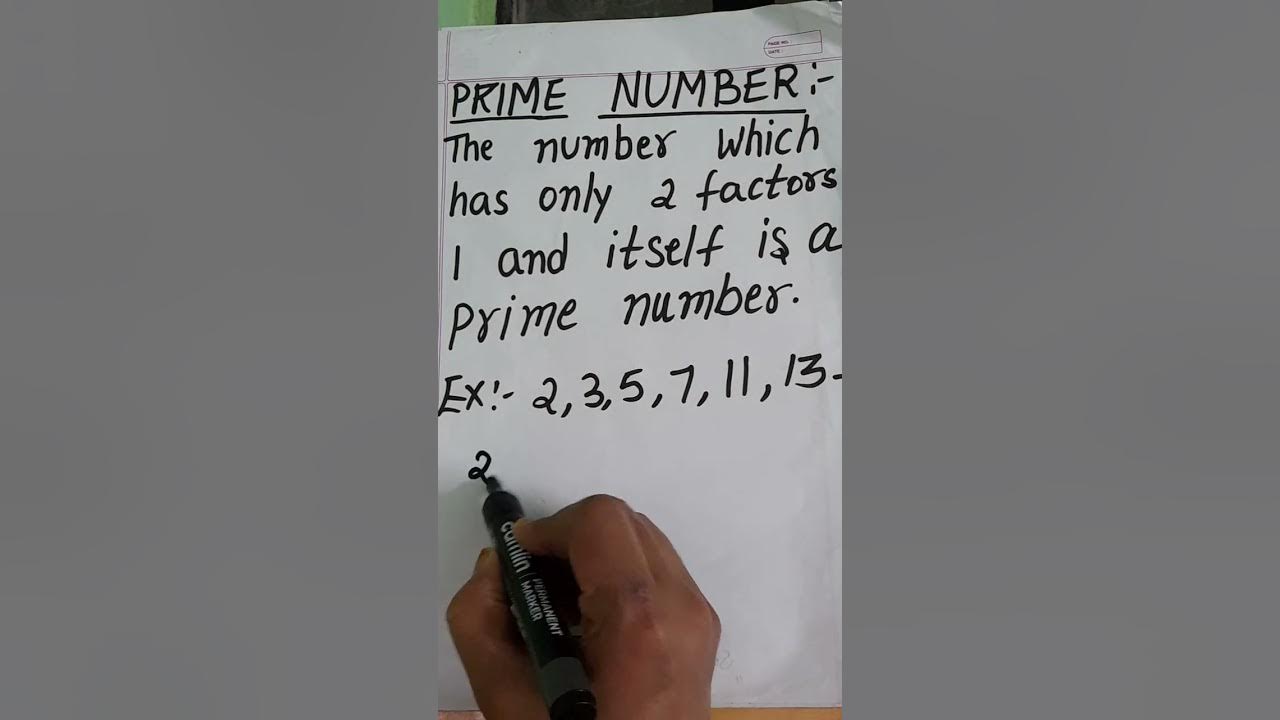 PAGE NO.
DATE :
PRIME NUMBER:-
The number which
has only 2 factors
1 and itself is a
Prime number.
Ex:- 2, 3, 5, 7, 11, 13-
2
camlin PERMANENT
MARKER